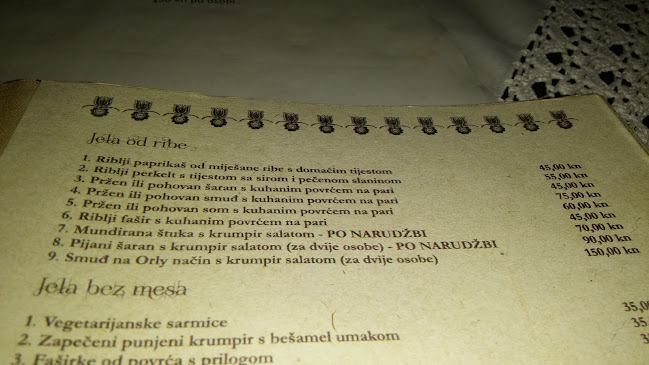 Jela od ribe
1. Riblji paprikaš od miješane ribe s domaćim tijestom 45,00 kn
2. Riblji perkelt s tijestom sa sirom i pečenom slaninom 55,00 kn
3. Pržen ili pohovan šaran s kuhanim povrćem na pari 45,00 kn
4. Pržen ili pohovan smuđ s kuhanim povrćem na pari 75,00 kn
5. Pržen ili pohovan som s kuhanim povrćem na pari 60,00 kn
6. Riblji fašir s kuhanim povrćem na pari 45,00 kn
7. Mundirana štuka s krumpir salatom - PO NARUDŽBI 70,00 kn
8. Pijani šaran s krumpir salatom (za dvije osobe) - PO NARUDŽBI 90,00 kn
9. Smuđ na Orly način s krumpir salatom (za dvije osobe) 150,00 kn
Jela bez mesa
1. Vegetarijanske sarmice 35,0
2. Zapečeni punjeni krumpir s bešamel umakom 35.
3. Faširke od povrća s prilogom